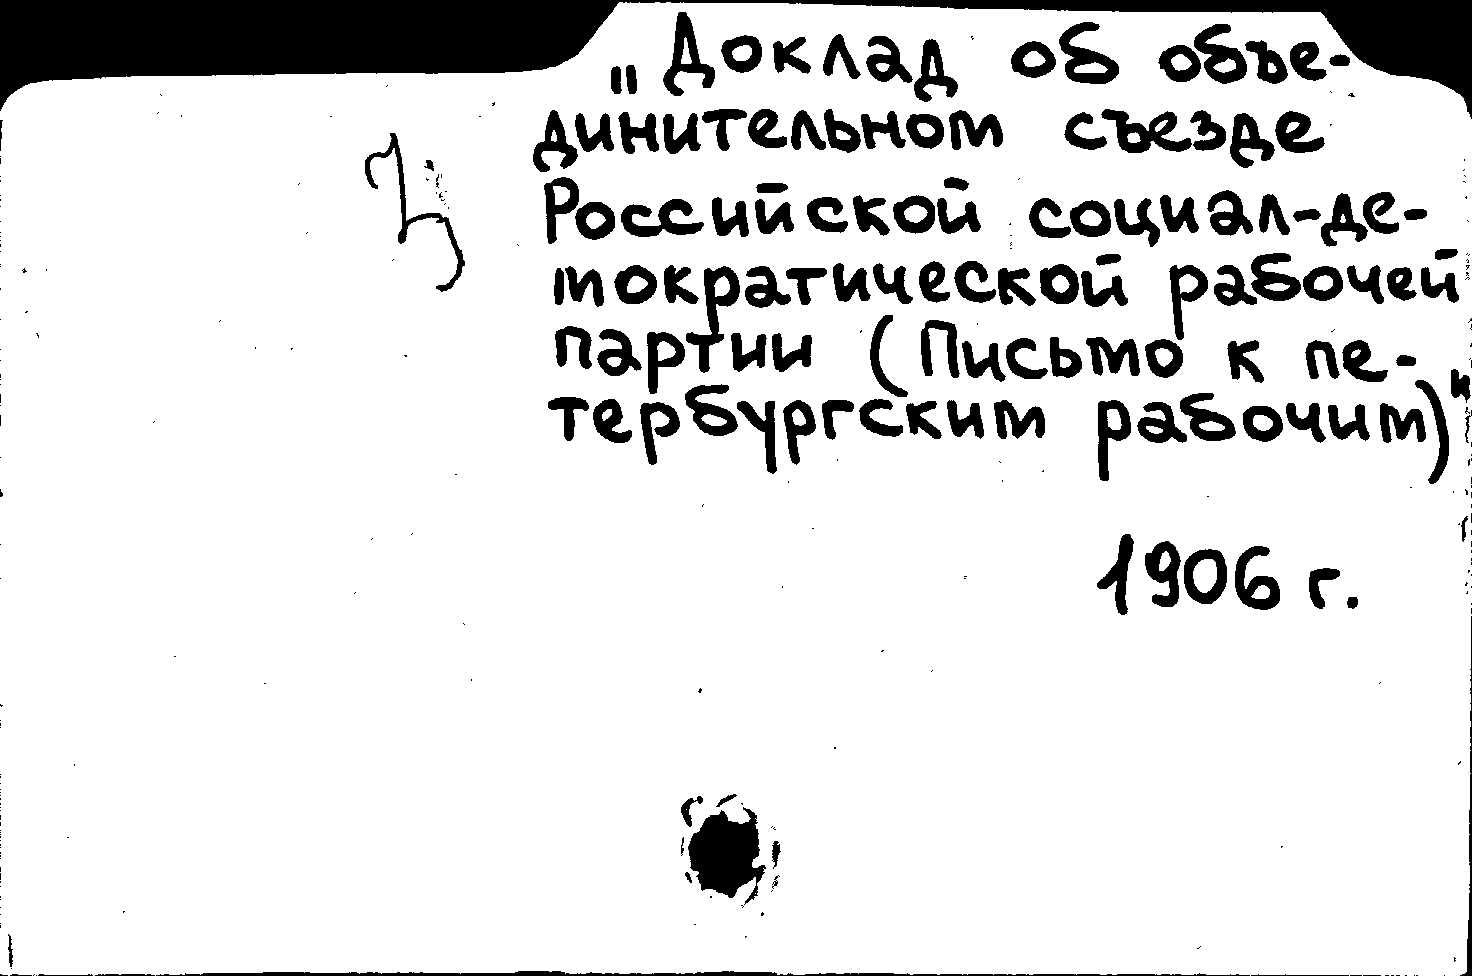 "Доклад об объе-
динительном съезде
Российской социал-де-
мократической рабочей
партии (Письмо к пе-
тербургским рабочим)"
1906 г.